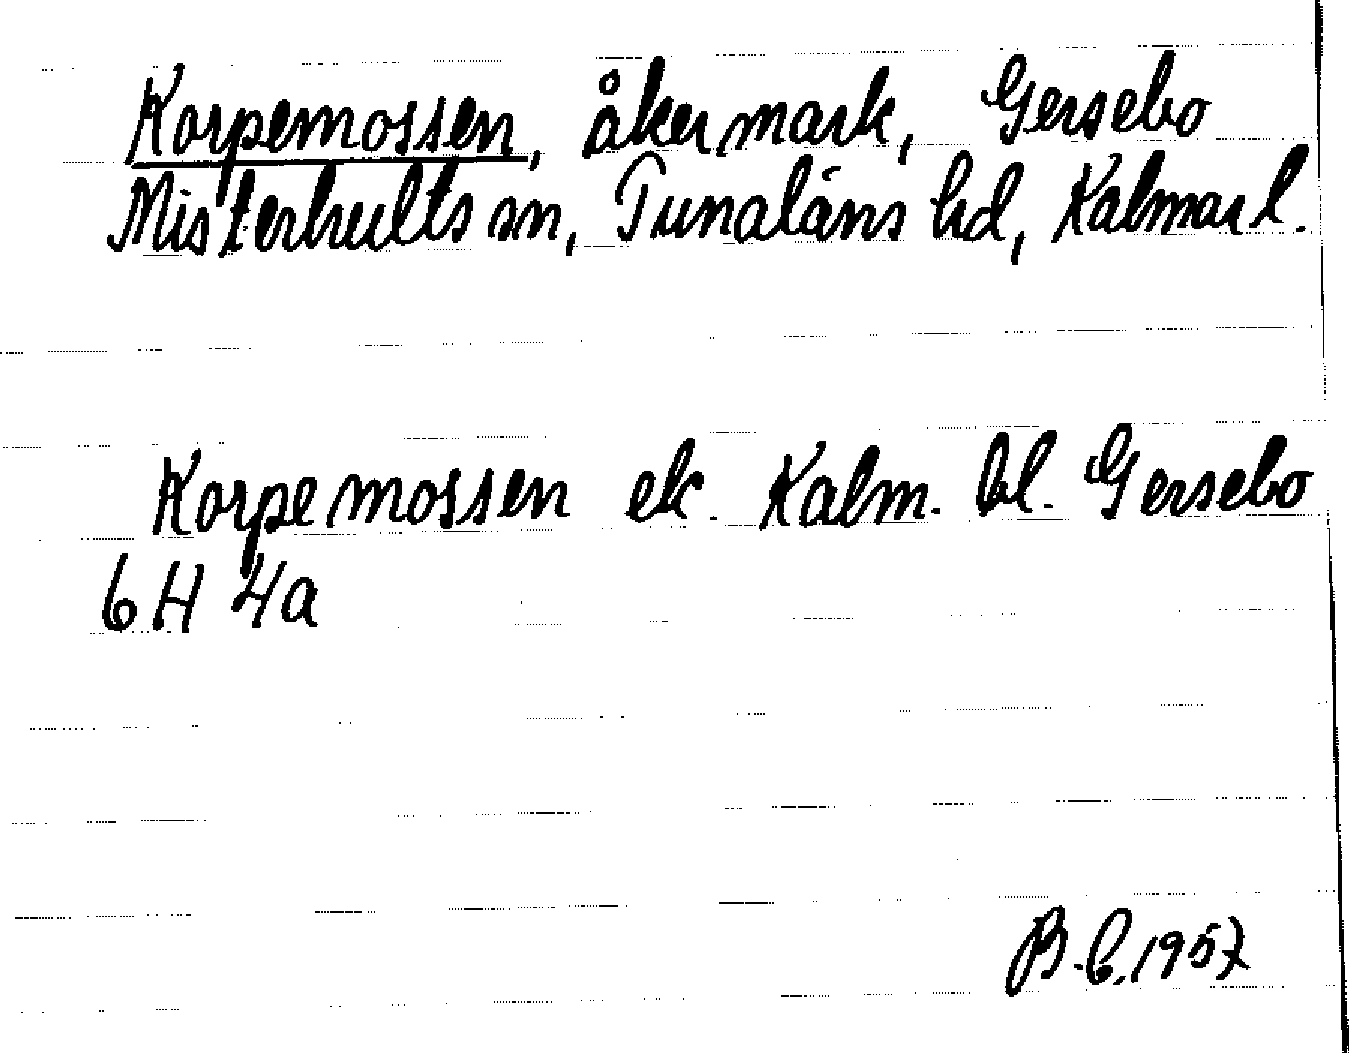 Korpemossen, åkermark, Gersebo
Misterhults sn, Tunaläns hd, Kalmar l.
Korpemossen ek. Kalm. bl. Gersebo
6 H 4a
B.C. 1957